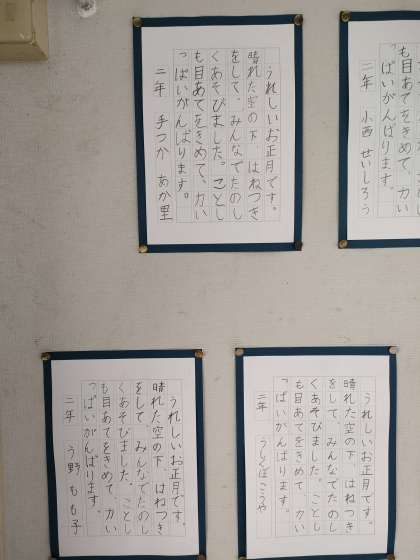 うれしいお正月です。
晴れた空の下、はねつき
をして、みんなでたのし
くあそびました。ことし
も目あてをきめて、力い
っぱいがんばります。
二年 手つか あか里
も目あてをきめて、力い
っぱいがんばります。
二年 小西 せいしろう
うれしいお正月です。
晴れた空の下、はねつき
をして、みんなでたのし
くあそびました。ことし
も目あてをきめて、力い
っぱいがんばります。
二年 う野 もも子
うれしいお正月です。
晴れた空の下、はねつき
をして、みんなでたのし
くあそびました。ことし
も目あてをきめて、力い
っぱいがんばります。
二年 うしくぼ こうや